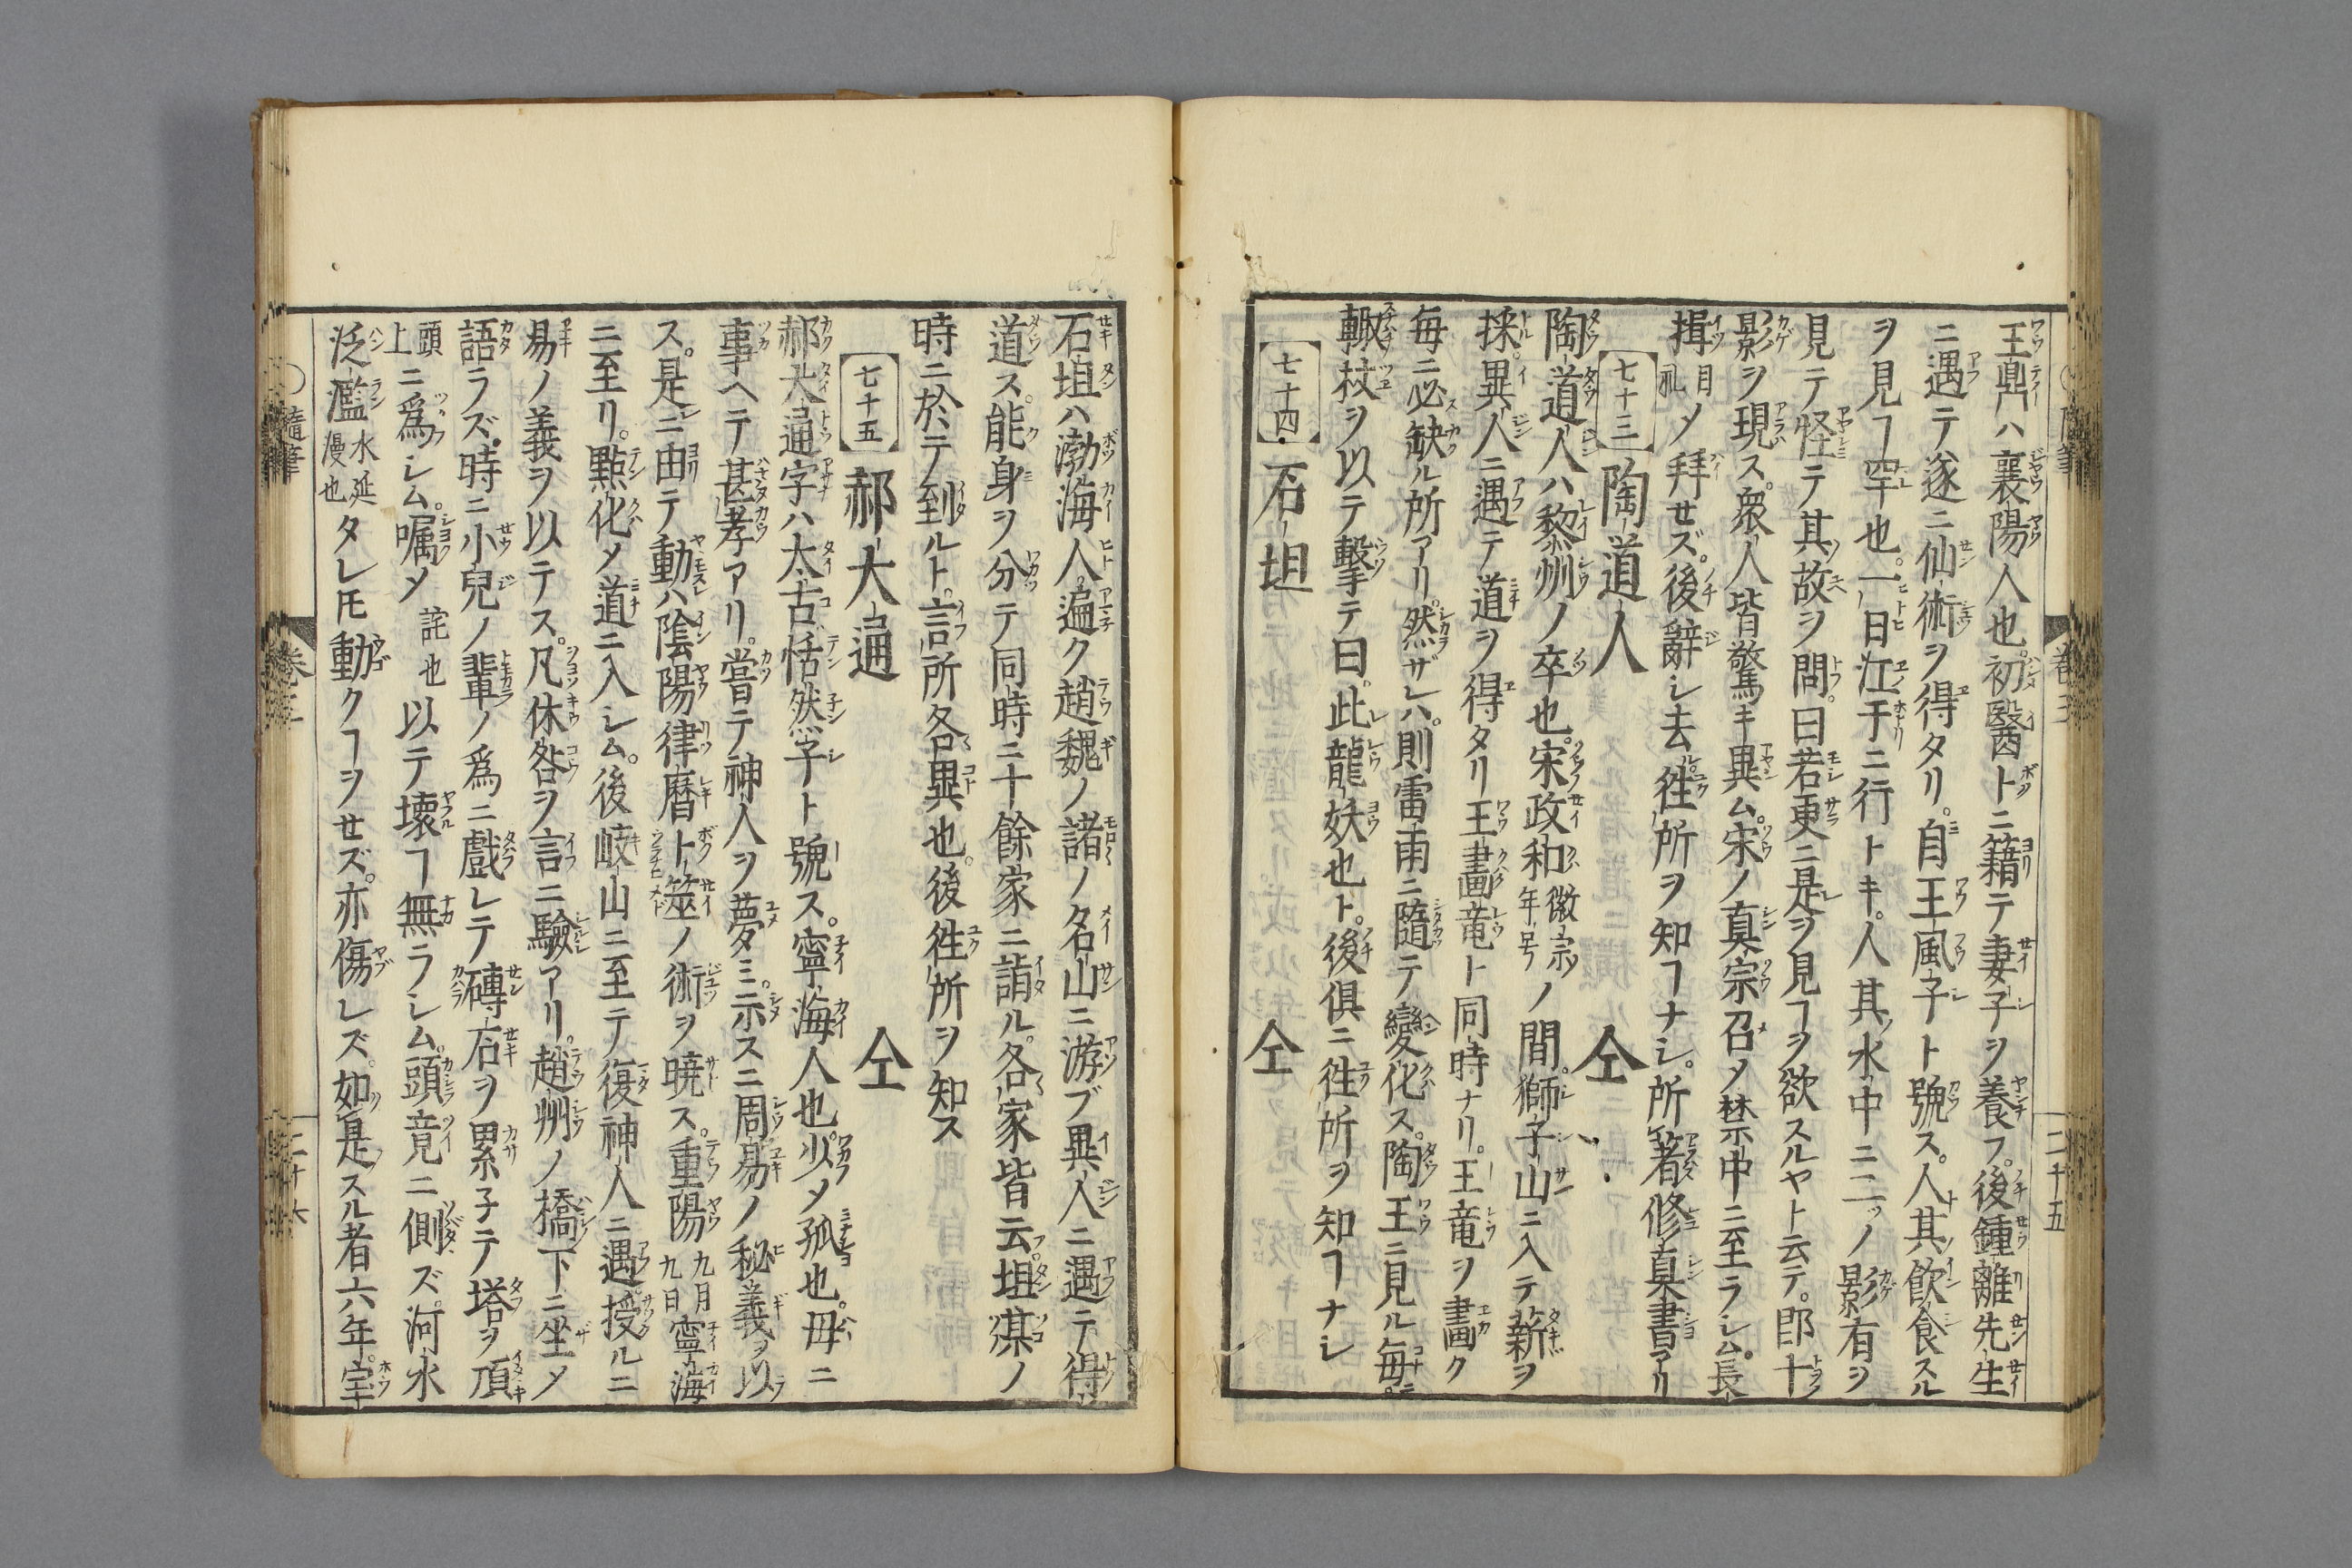 王鼎ハ襄陽人也。初醫トニ籍テ妻子ヲ養フ。後鍾離先生
ニ遇テ遂ニ仙術ヲ得タリ。自王風子ト號ス。人其飲食スル
ヲ見ヿ罕也。一日江干ニ行トキ。人其水中ニ二ツノ影有ヲ
見テ怪テ其故ヲ問。曰若更ニ是ヲ見ヿヲ欲スルヤト云テ。即十
影ヲ現ス。衆人皆驚キ異ム。宋ノ真宗召メ禁中ニ至ラシム。長
揖メ拜セズ。後辭シ去徃所ヲ知ヿナシ。所著修真書アリ
七十三 陶道人 仝
陶道人ハ黎州ノ卒也。宋政和徽宗年号ノ間獅子山ニ入テ薪ヲ
採。異人ニ遇テ道ヲ得タリ王畫竜ト同時ナリ。王竜ヲ畫ク
毎ニ必缺ル所アリ。然ザレハ。則雷雨ニ隨テ變化ス。陶王ニ見ル毎。
輙杖ヲ以テ擊テ曰。此龍妖也ト。後俱ニ徃所ヲ知ヿナシ
七十四 石坦 仝
石坦ハ渤海人遍ク趙魏ノ諸ノ名山ニ游ブ異人ニ遇テ得
道ス。能身ヲ分テ同時ニ十餘家ニ詣ル。各家皆云坦某ノ
時ニ於テ到ルト。言所各異也。後徃所ヲ知ス
七十五 郝大通 仝
郝大通字ハ太古恬然子ト號ス。寧海人也。少メ孤也。母ニ
事ヘテ甚孝アリ。嘗テ神人ヲ夢ミ。示スニ周易ノ秘義ヲ以
ス。是ニ由テ動ハ陰陽律曆ト筮ノ術ヲ暁ス。重陽九月九日寧海
ニ至リ。點化メ道ニ入シム。後岐山ニ至テ復神人ニ遇授ルニ
易ノ義ヲ以テス。凡休咎ヲ言ニ驗アリ。趙州ノ橋下ニ坐メ
語ラズ。時ニ小兒ノ輩ノ爲ニ戲レテ磚石ヲ累子テ塔ヲ頂
頭上ニ爲シム。囑メ 詫也 以テ壞ヿ無ラシム。頭竟ニ側ズ。河水
泛濫水延漫也タレ𪜈動クヿヲセズ。亦傷レズ。如是スル者六年
隨筆
卷三
二十五